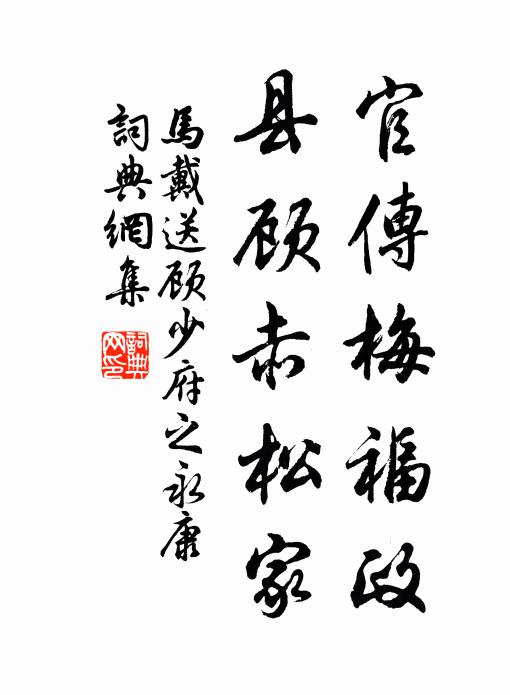 官傳梅福政
县顾赤松家
馬戴送顾少府之永康
詞典網集
詞典网印